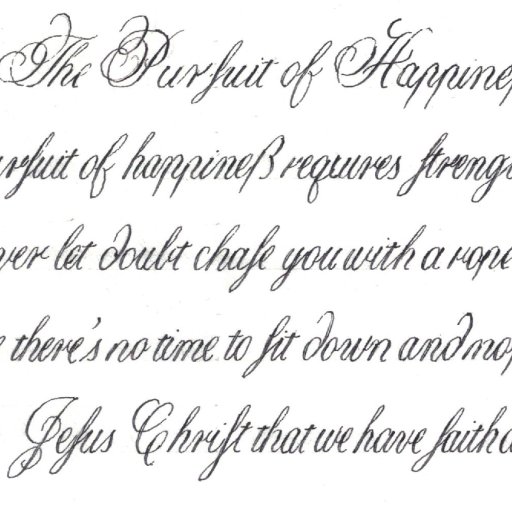 The Purſuit of Happineſ
urſuit of happineß requires ſtreng
ver let doubt chaſe you with a rope
there's no time to ſit down and
Jeſus Chriſt that we have faith